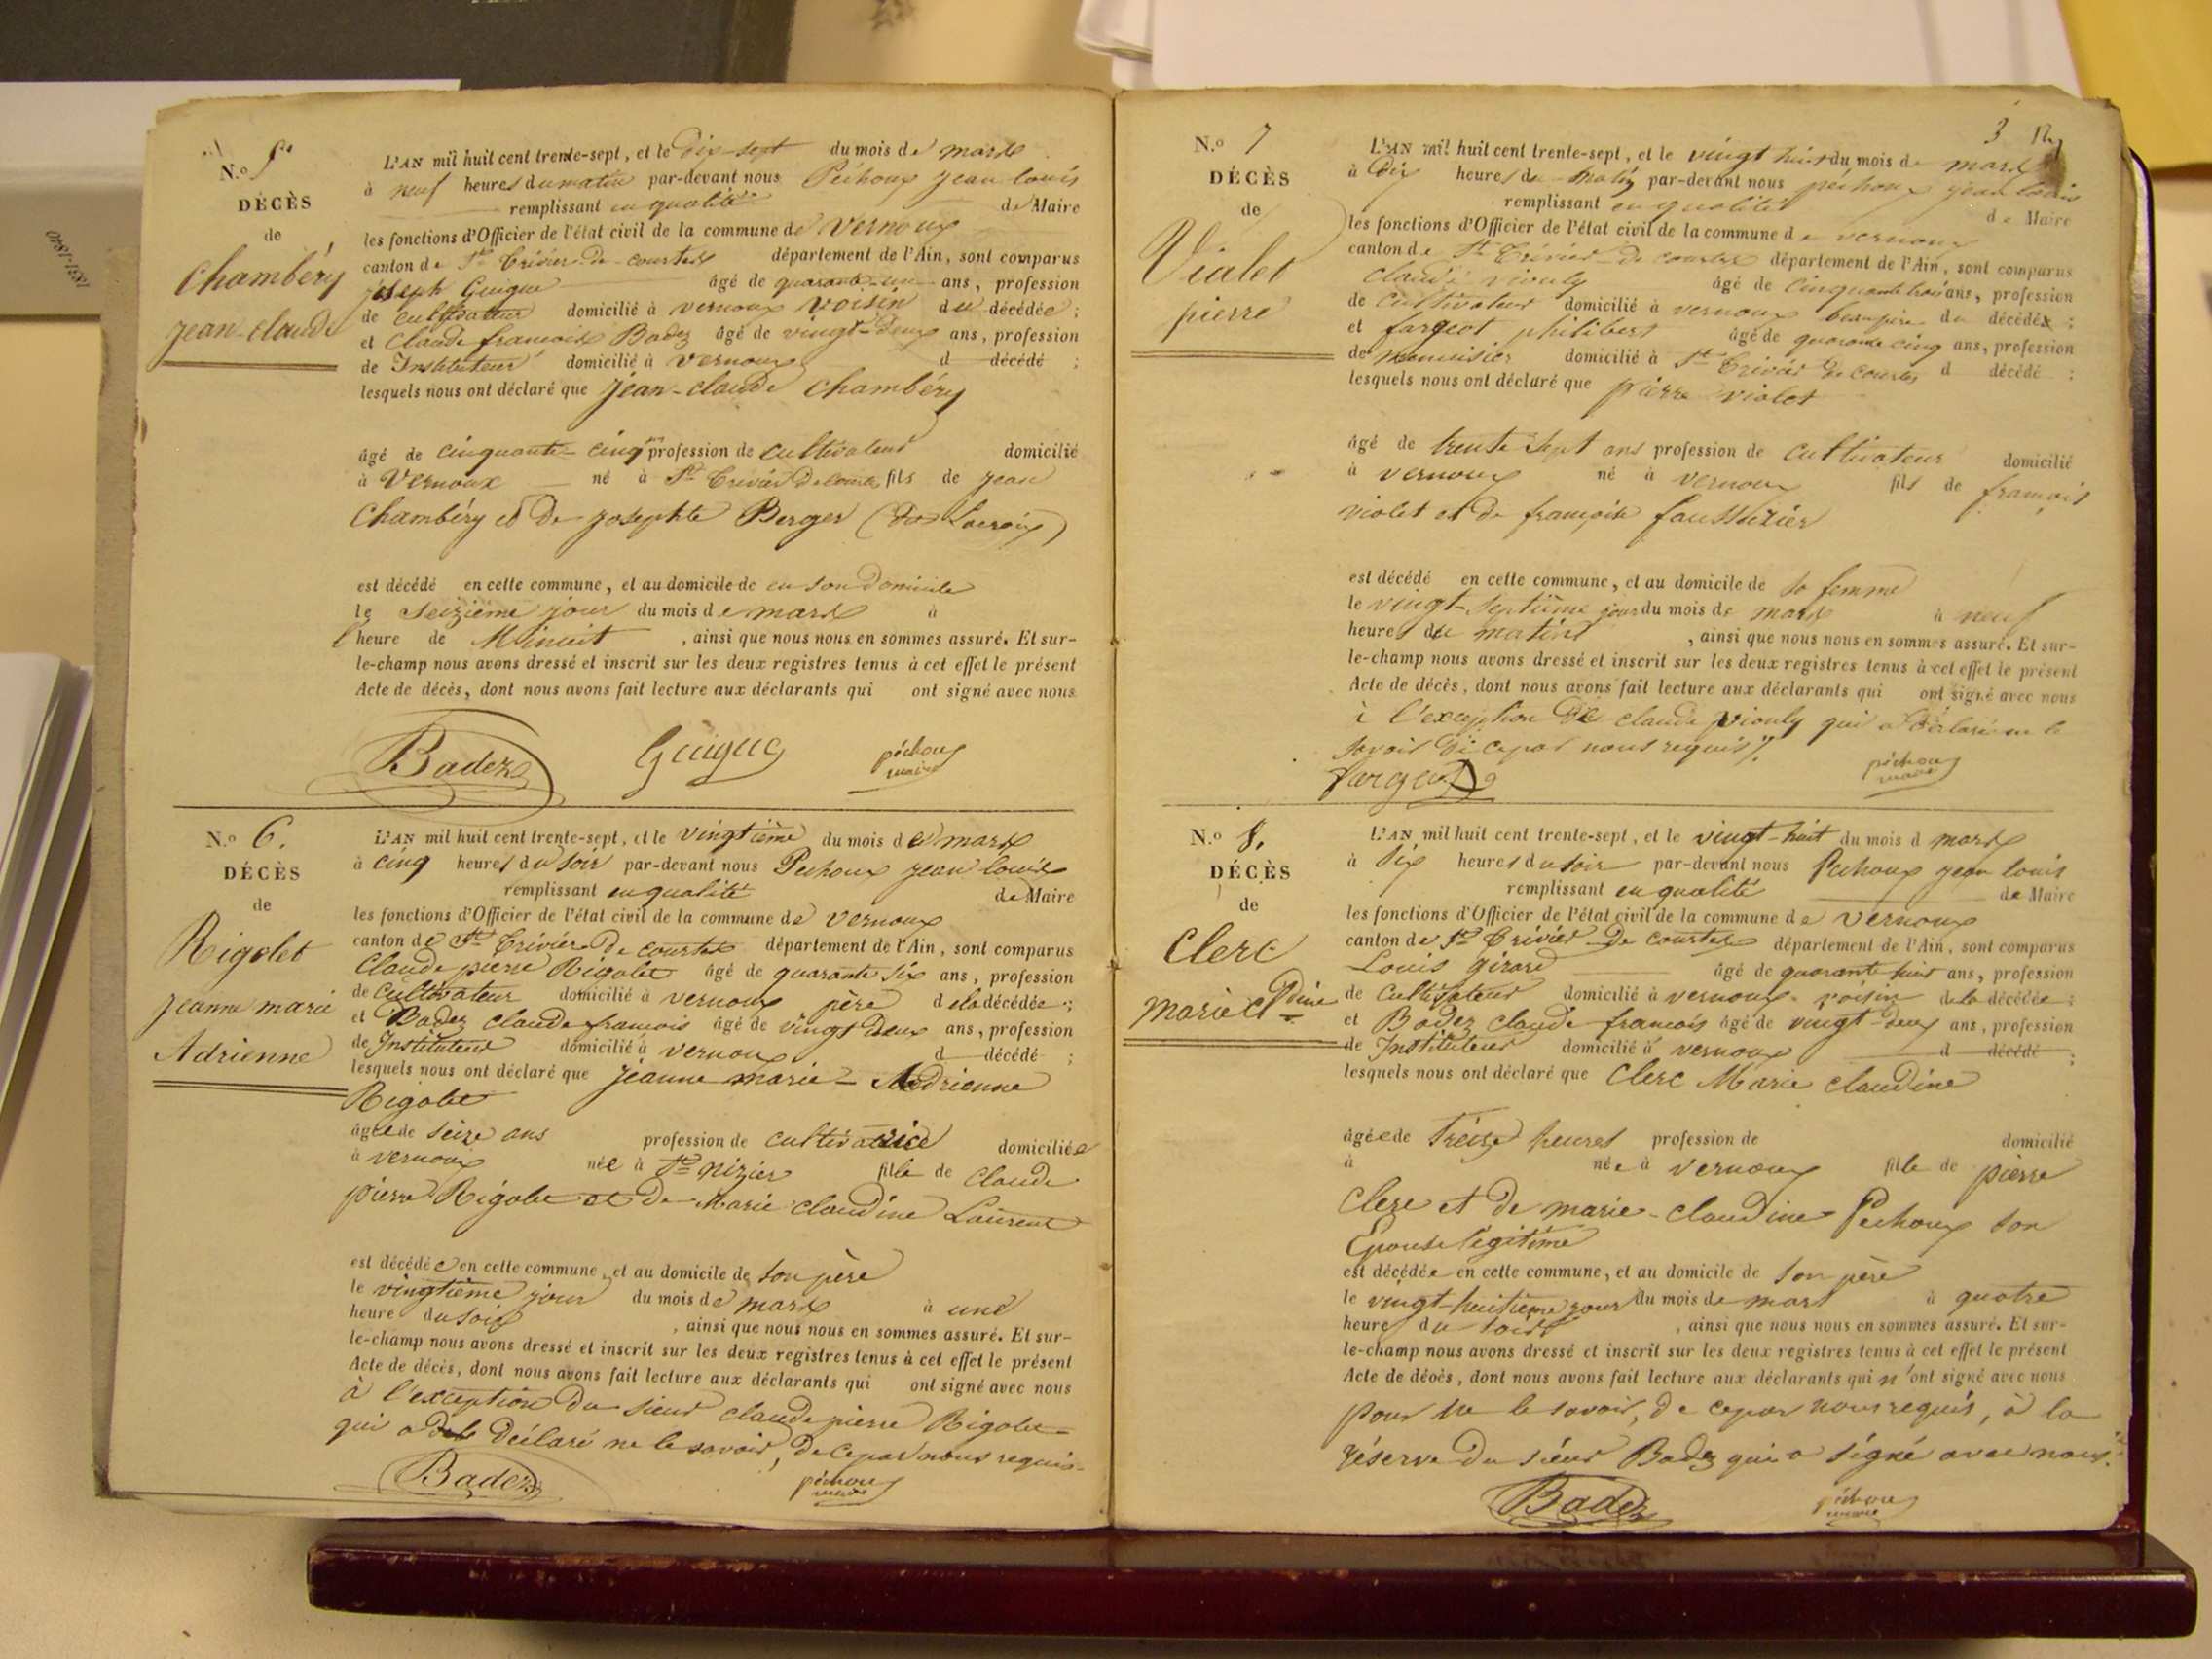 1831-1840
N.o 5.
DÉCÈS
de
Chambéry
jean-claude
L'AN mil huit cent trente-sept, et le dix-sept du mois de mars
à neuf heures du matin par-devant nous Péchoux jean louis
remplissant en qualité de Maire
les fonctions d'Officier de l'état civil de la commune de Vernoux
canton de St Trivier-de-courtes département de l'Ain, sont comparus
joseph Guigue âgé de quarante-un ans, profession
de cultivateur domicilié à vernoux voisin du décédée;
et Claude françois Badez âgé de vingt-deux ans, profession
de Instituteur domicilié à vernoux d décédé ;
lesquels nous ont déclaré que jean-claude Chambéry
âgé de cinquante-cinq ans profession de cultivateur domicilié
à Vernoux né à St Trivier de courtes fils de jean
Chambéry et De josephte Berger (dit Lacroix)
est décédé en cette commune, et au domicile de en son Domicile
le seizième jour du mois de mars à
l'heure de Minuit, ainsi que nous nous en sommes assuré. Et sur-
le-champ nous avons dressé et inscrit sur les deux registres tenus à cet effet le présent
Acte de décès, dont nous avons fait lecture aux déclarants qui ont signé avec nous
Badez Guigue péchoux
maire
N.o 6.
DÉCÈS
de
Rigolet
jeanne marie
Adrienne
L'AN mil huit cent trente-sept, et le vingtième du mois de mars
à cinq heures du soir par-devant nous Pechoux jean louis
remplissant en qualité de Maire
les fonctions d'Officier de l'état civil de la commune de vernoux
canton de St Trivier De courtes département de l'Ain, sont comparus
Claude pierre Rigolet âgé de quarante six ans, profession
de cultivateur domicilié à vernoux père de la décédée;
et Badez claude françois âgé de vingt deux ans, profession
de Instituteur domicilié à vernoux d décédé ;
lesquels nous ont déclaré que jeanne marie-Adrienne
Rigolet
âgée de seize ans profession de cultivatrice domiciliée
à vernoux née à St nizier fille de Claude
pierre Rigolet et De Marie claudine Laurent
est décédée en cette commune, et au domicile de son père
le vingtième jour du mois de mars à une
heure du soir, ainsi que nous nous en sommes assuré. Et sur-
le-champ nous avons dressé et inscrit sur les deux registres tenus à cet effet le présent
Acte de décès, dont nous avons fait lecture aux déclarants qui ont signé avec nous
à l'exception du sieur claude pierre Rigolet
qui a déclaré ne le savoir, De ce par nous requis
Badez péchoux
maire
3
N.o 7
DÉCÈS
de
Violet
pierre
L'AN mil huit cent trente-sept, et le vingt huit du mois de mars
à Dix heures du matin par-devant nous péchoux jean louis
remplissant en qualité de Maire
les fonctions d'Officier de l'état civil de la commune de vernoux
canton de St Trivier-De courtes département de l'Ain, sont comparus
claude viouly âgé de cinquante trois ans, profession
de cultivateur domicilié à vernoux beau père du décédé ;
et fargeot philibert âgé de quarante cinq ans, profession
de menuisier domicilié à St Trivier De courtes d décédé ;
lesquels nous ont déclaré que pierre violet
âgé de trente sept ans profession de cultivateur domicilié
à vernoux né à vernoux fils de françois
violet et de françoise
est décédé en cette commune, et au domicile de sa femme
le vingt-septième jour du mois de mars à neuf
heures du matin, ainsi que nous nous en sommes assuré. Et sur-
le-champ nous avons dressé et inscrit sur les deux registres tenus à cet effet le présent
Acte de décès, dont nous avons fait lecture aux déclarants qui ont signé avec nous
à l'exception De claude viouly qui a déclaré ne le
savoir De ce par nous requis
fargeot péchoux
maire
N.o 8.
DÉCÈS
de
Clerc
Marie Cldine
L'AN mil huit cent trente-sept, et le vingt-huit du mois d mars
à six heures du soir par-devant nous Pechoux jean louis
remplissant en qualité de Maire
les fonctions d'Officier de l'état civil de la commune de Vernoux
canton de St Trivier-De courtes département de l'Ain, sont comparus
Louis girard âgé de quarante-huit ans, profession
de cultivateur domicilié à vernoux voisin de la décédée ;
et Badez claude françois âgé de vingt-deux ans, profession
de Instituteur domicilié à vernoux d décédé ;
lesquels nous ont déclaré que Clerc Marie claudine
âgée de Treize heures profession de domicilié
à née à vernoux fille de pierre
Clerc et De marie-claudine Pechoux son
Epouse légitime
est décédée en cette commune, et au domicile de son père
le vingt-huitième jour du mois de mars à quatre
heures du soir, ainsi que nous nous en sommes assuré. Et sur-
le-champ nous avons dressé et inscrit sur les deux registres tenus à cet effet le présent
Acte de décès, dont nous avons fait lecture aux déclarants qui n'ont signé avec nous
pour ne le savoir, De ce par nous requis, à la
réserve Du sieur Badez qui a signé avec nous.
Badez péchoux
maire